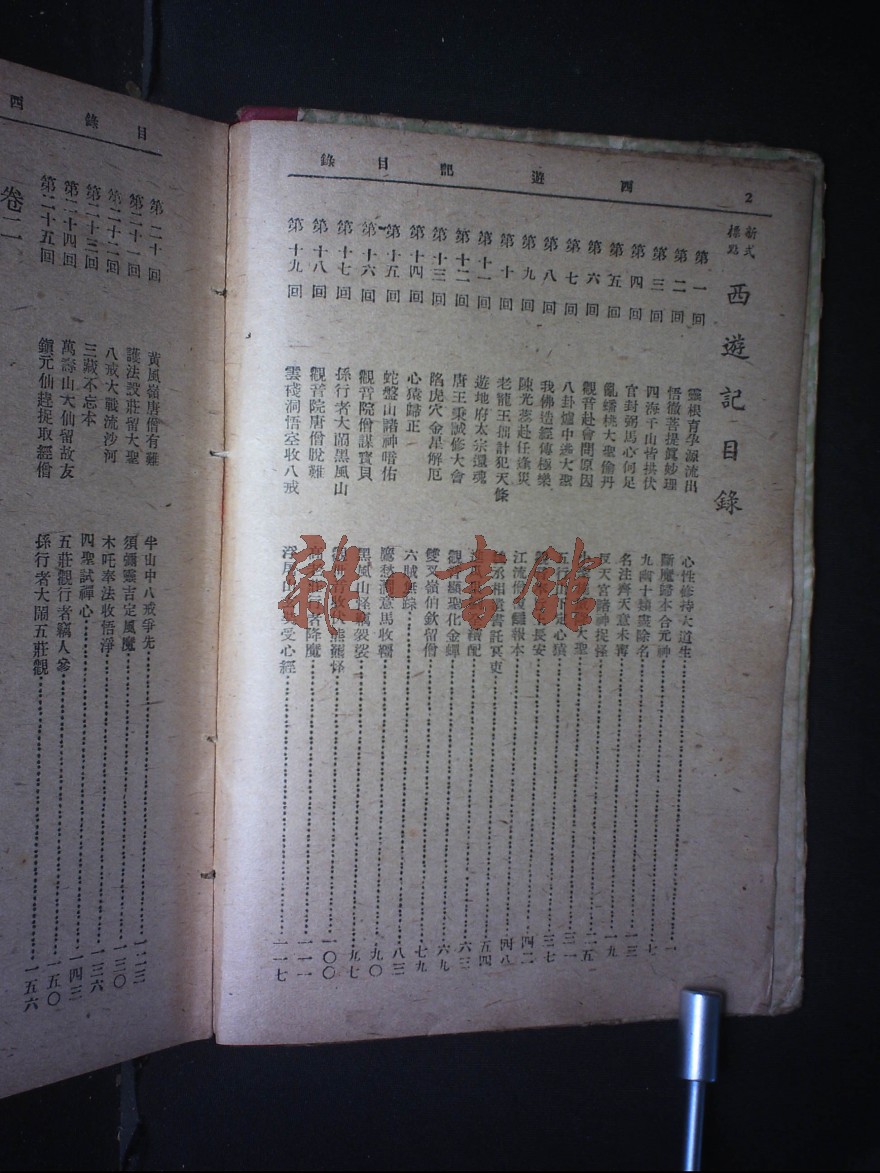 2
西遊記目錄
新式標點
西遊記目錄
第一回 靈根育孕源流出 心性修持大道生 一
第二回 悟徹菩提眞妙理 斷魔歸本合元神 七
第三回 四海千山皆拱伏 九幽十類盡除名 一三
第四回 官封弼馬心何足 名注齊天意未寗 一九
第五回 亂蟠桃大聖偷丹 反天宮諸神捉怪 二五
第六回 觀音赴會問原因 大聖 三一
第七回 八卦爐中逃大聖 五 心猿 三七
第八回 我佛造經傳極樂 長安 四二
第九回 陳光蕊赴任逢災 江流僧復讎報本 四八
第十回 老龍王拙計犯天條 丞相遺書託冥吏 五四
第十一回 遊地府太宗還魂 續配 六三
第十二回 唐王秉誠修大會 觀音顯聖化金蟬 六九
第十三回 陷虎穴金星解厄 雙叉嶺伯欽留僧 七九
第十四回 心猿歸正 六賊無踪 八三
第十五回 蛇盤山諸神暗佑 鷹愁澗意馬收韁 九〇
第十六回 觀音院僧謀寶貝 黑風山怪竊袈裟 九七
第十七回 孫行者大鬧黑風山 收伏熊羆怪 一〇〇
第十八回 觀音院唐僧脫難 高 行者降魔 一一一
第十九回 雲棧洞悟空收八戒 浮屠山 受心經 一一七
目錄
西
第二十回 黃風嶺唐僧有難 半山中八戒爭先 一二三
第二十一回 護法設莊留大聖 須彌靈吉定風魔 一三〇
第二十二回 八戒大戰流沙河 木吒奉法收悟淨 一三六
第二十三回 三藏不忘本 四聖試禪心 一四三
第二十四回 萬壽山大仙留故友 五莊觀行者竊人參 一五〇
第二十五回 鎭元仙趕捉取經僧 孫行者大鬧五莊觀 一五六
卷二